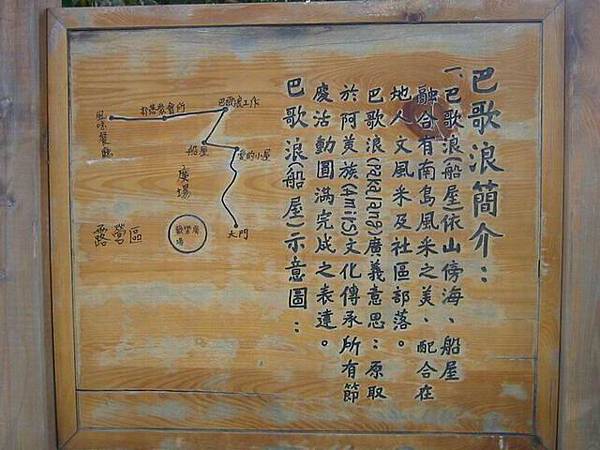 巴歌浪簡介：
一、巴歌浪(船屋)依山傍海、船屋
融合有南島風采之美、配合在
地人文風采及社區部落。
巴歌浪(palalang)廣義意思：原取
於阿美族(Amis)文化傳承所有節
慶活動圓滿完成之表達。
巴歌浪(船屋)示意圖：
巴歌浪工作
船屋
愛的小屋
大門
廣場
露營區